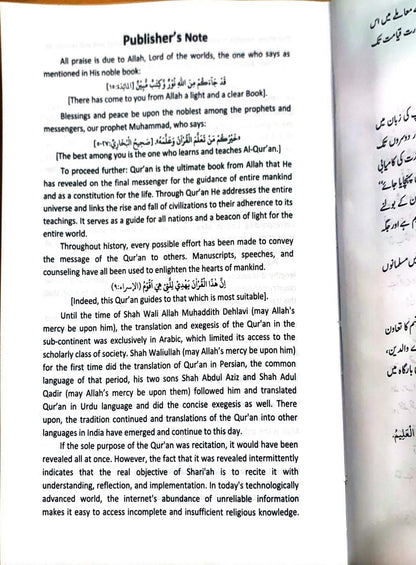 Publisher's Note
All praise is due to Allah, Lord of the worlds, the one who says as
mentioned in His noble book:
قَدْ جَاءَكُمْ مِنَ اللَّهِ نُورٌ وَكِتَابٌ مُبِينٌ (المائدة:١٥)
[There has come to you from Allah a light and a clear Book].
Blessings and peace be upon the noblest among the prophets and
messengers, our prophet Muhammad, who says:
«خَيْرُكُمْ مَنْ تَعَلَّمَ الْقُرْآنَ وَعَلَّمَهُ». (صَحِيحُ الْبُخَارِيّ:٥٠٢٧)
[The best among you is the one who learns and teaches Al-Qur'an.]
To proceed further: Qur'an is the ultimate book from Allah that He
has revealed on the final messenger for the guidance of entire mankind
and as a constitution for the life. Through Qur'an He addresses the entire
universe and links the rise and fall of civilizations to their adherence to its
teachings. It serves as a guide for all nations and a beacon of light for the
entire world.
Throughout history, every possible effort has been made to convey
the message of the Qur'an to others. Manuscripts, speeches, and
counseling have all been used to enlighten the hearts of mankind.
إِنَّ هَذَا الْقُرْآنَ يَهْدِي لِلَّتِي هِيَ أَقْوَمُ (الإسراء:٩)
[Indeed, this Qur'an guides to that which is most suitable].
Until the time of Shah Wali Allah Muhaddith Dehlavi (may Allah's
mercy be upon him), the translation and exegesis of the Qur'an in the
sub-continent was exclusively in Arabic, which limited its access to the
scholarly class of society. Shah Waliullah (may Allah's mercy be upon him)
for the first time did the translation of Qur'an in Persian, the common
language of that period, his two sons Shah Abdul Aziz and Shah Adul
Qadir (may Allah's mercy be upon them) followed him and translated
Qur'an in Urdu language and did the concise exegesis as well. There
upon, the tradition continued and translations of the Qur'an into other
languages in India have emerged and continue to this day.
If the sole purpose of the Qur'an was recitation, it would have been
revealed all at once. However, the fact that it was revealed intermittently
indicates that the real objective of Shari'ah is to recite it with
understanding, reflection, and implementation. In today's technologically
advanced world, the internet's abundance of unreliable information
makes it easy to access incomplete and insufficient religious knowledge.
معاملے میں اس
رت قیامت تک
کی زبان میں
دوسروں تک
رت کی کامیابی
پہنچایا جائے"
ن کے بولنے
م ہے اور جگہ
میں مسلمانوں
م کا تعاون
ے والدین،
بارگاہ میں
الْعَلِيمُ